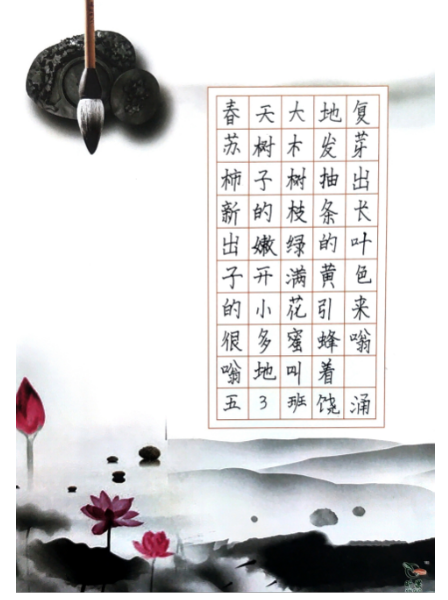 春天大地复
苏树木发芽
柿子树抽出
新的枝条长
出嫩绿的叶
子开满黄色
的小花引来
很多蜜蜂嗡
嗡地叫着
五3班饶涌